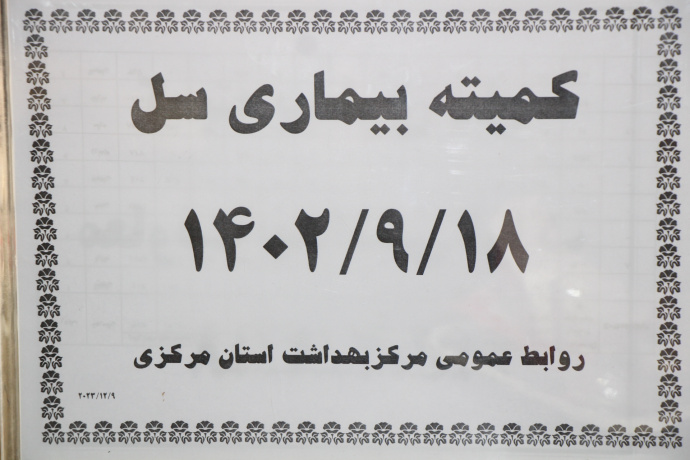 کمیته بیماری سل
۱۴۰۲/۹/۱۸
روابط عمومی مرکزبهداشت استان مرکزی
۲۰۲۳/۱۲/۹